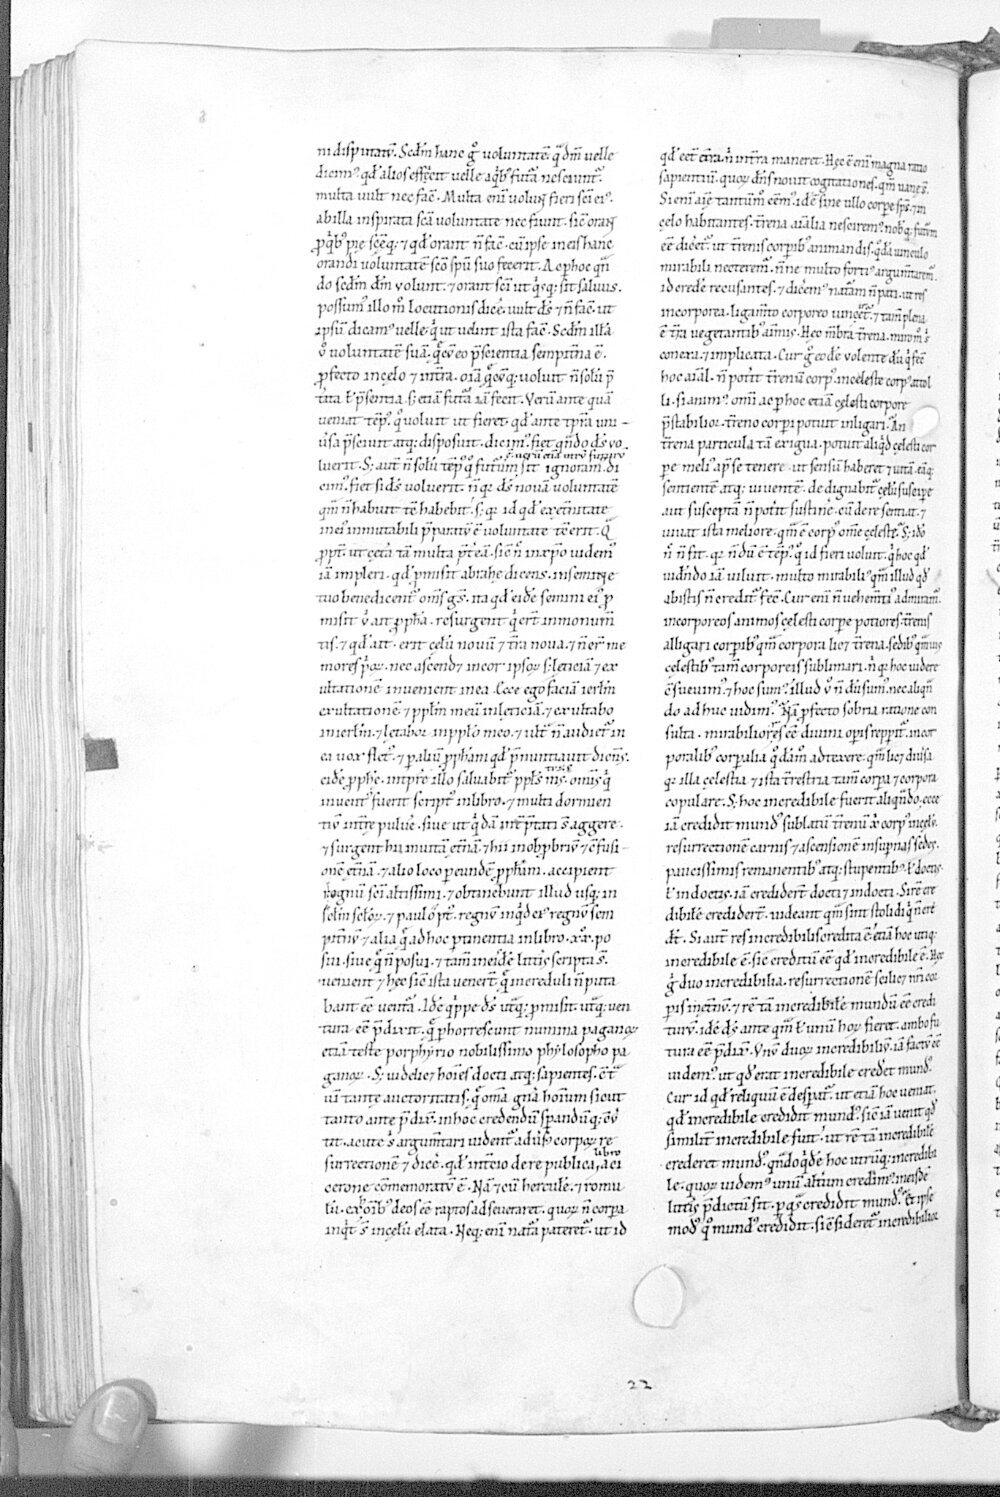 ni disputatẽ. Scdm̃ hanc g̊ voluntatẽ. q̃ dm̃ uelle
dicim⁹. qđ alios efficit uelle a qb⁹ futa nesciunt.
multa uult nec facĩt. Multa eni uolunt fieri sci ei⁹.
ab illa inspirata sca uoluntate nec fiunt. sic orant
p qb⁹dã pie sceq;. ⁊ qđ orant ñ facit. cũ ipse in eis hanc
orandi uoluntatẽ sco spũ suo fecerit. Ac p hoc qñ
do scdm̃ dm̃ uolunt. ⁊ orant sci ut qsq; sit saluus.
possum⁹ illo mo locutionis dicẽ. uult ds ⁊ ñ facit. ut
ipsũ dicam⁹ uelle. q ut uelint ista facit. Scdm̃ illã
ũ uoluntatẽ suã. q̃ cũ eo p̃scientia sempitna ẽ.
pfecto in celo ⁊ in tra. oĩa q̃cũq; uoluit ñ solũ p̃
tita ł p̃sentia. s; etiã futa iã fecit. Verũ ante quã
ueniat temp⁹. q uoluit ut fieret. qđ ante tpra uni-
uersa p̃sciuit atq; disposuit. dicim⁹. fiet qñdo ds uo
s; utrũ etiã utrũ futurũ
luerit. S; aut ñ solũ temp⁹ q futurũ sit ignoram⁹. di
cim⁹. fiet si ds uoluerit. ñ qr ds nouã uoluntatẽ
qm̃ ñ habuit tc̃ habebit. s; qr id qđ ex etnitate
in ei⁹ inmutabili p̃paratũ ẽ uoluntate tc̃ erit. Q̃
ppt. ut cetã tã multa p̃teã. sic ñ in xpo uidem⁹
iã impleri. qđ pmisit abrahe dicens. in semine
tuo benedicent oms gs. ita qđ eidẽ semini ei⁹ p
misit ũ ait ppha. resurgent q erñt in monum̃
tis. ⁊ qđ ait. erit celũ nouũ ⁊ tra noua. ⁊ ñ ert me
mores prioꝝ. nec ascend̃ ⁊ in cor ipsoꝝ s; leticiã ⁊ ex
ultationẽ inuenient in ea. Ecce ego faciã ierlm̃
exultationẽ ⁊ pplm̃ meũ in leticiã. ⁊ exultabo
in ierlm̃. ⁊ letabor in pplo meo. ⁊ ultã ñ audiet in
ea uox flet⁹. ⁊ p aliũ ppham qđ p̃nuntiauit dicens.
eidẽ pphe. in tpre illo saluabit ppls tuus. omis q
inuent⁹ fuerit script⁹ in libro. ⁊ multi dormien
tiũ in tre puluẽ. siue ut qdã int̃p̃tati st aggere.
⁊ surgent hii in uitã etnã. ⁊ hii in obpbriũ ⁊ cfusi-
onẽ etnã. ⁊ alio loco p eundẽ ppham. accipient
regnũ sci altissimi. ⁊ obtinebunt illud usq; in
sclm̃ scloꝝ. ⁊ paulo pt. regnũ inqđ ei⁹ regnũ sem
pitnũ. ⁊ alia q̃ ad hoc ptinentia in libro .xx. po
sui. siue q̃ ñ posui. ⁊ tam̃ in eisdẽ littis scripta st.
uenient ⁊ hec sic ista uenert. q̃ increduli ñ puta
bant eẽ uentã. Idẽ qppe ds utq; pmisit. utq; uen
tura eẽ p̃dixit. qm phorrescunt numina paganoꝝ
etiã teste porphyrio nobilissimo phylosopho pa
ganoꝝ. S; uidelicet hoĩes docti atq; sapientes. ct
uã tante auctoritatis. q̃ oma gna hoĩum sicut
tanto ante p̃dixit. in hoc credendũ sperandũq; cũ
tit. acute s argum̃tari uident adusũ corpoꝝ re
surrectionẽ ⁊ dicẽ. qđ in tcio de re publica libro a ci
cerone cõmemoratũ ẽ. Nã ⁊ cũ herculẽ. ⁊ romu
lũ. ex hoĩb⁹ deos eẽ raptos adseueraret. quoꝝ ñ corpa
inqt st in celũ elata. Neq; eni natã pateret. ut id
qđ eẽt e tra. ñ in tra maneret. Hec ẽ eni magna ratio
sapientiũ. quoꝝ dñs nouit cogitationes. qm̃ uane st.
Si eni aie tantum̃ cẽm⁹. idẽ sine ullo corpe sps. ⁊ in
celo habitantes. trena aĩalia nescirem⁹. nobq; futum
eẽ dicet. ut trenis corpib⁹ animandis. qdã uinculo
mirabili necterem⁹. ñne multo forti⁹ argum̃tarem⁹.
id credẽ recusantes. ⁊ dicem⁹ natãm ñ pati. ut res
incorporea. ligam̃to corporeo uincet⁹. ⁊ tam̃ plena
ẽ tra uegetantib⁹ aĩmis. Hec m̃bra trena. miro m̊ s
conexa ⁊ implicata. Cur g̊ eodẽ uolente dõ q fec̃
hoc aĩal. ñ potit trenũ corp⁹. in celeste corp⁹ attol
li. si anim⁹ omĩ ac p hoc etiã celesti corpore
p̃stabilior. treno corpi potuit inligari. An
trena particula tã exigua. potuit aliqđ celesti cor
pe meli⁹ ap̃ se tenere. ut sensũ haberet ⁊ uitã. eãq;
sentientẽ atq; uiuentẽ. dedignabit celũ suscipe
aut susceptã ñ potit sustinẽ. cũ de re sentiat. ⁊
uiuat ista meliore. qm̃ ẽ corp⁹ om̃e celeste. S; idõ
ñ ñ fit. qr ñdũ ẽ temp⁹. q id fieri uoluit. q hoc qđ
uidndo iã uiluit. multo mirabili⁹ qm̃ illud qđ
ab istis ñ credit⁹. fecit. Cur eni ñ uehem̃ti⁹ admiram⁹.
incorporeos animos celesti corpe potiores. trenis
alligari corpib⁹ qm̃ corpora licet trena. sedib⁹ qm̃uis
celestib⁹ tam̃ corporeis sublimari. ñ qr hoc uidere
csueuim⁹. ⁊ hoc sum⁹. illud ũ ñ dũ sum⁹. nec aliqñ
do adhuc uidim⁹. Nã pfecto sobria ratione con
sulta. mirabiliores eẽ diuini opis reppit⁹. incor
poralib⁹ corpalia qdam̃ adtexere. qm̃ licet diuisa
qr illa celestia ⁊ ista trestria. tam̃ corpa ⁊ corpora
copulare. S; hoc incredibile fuerit aliqñdo. ecce
iã credidit mund⁹ sublatũ trenũ xi corp⁹ in celũ.
resurrectionẽ carnis ⁊ ascensionẽ in supnas sedes.
paucissimis remanentib⁹ atq; stupentib⁹. ł doctis
ł indoctis. iã crediderũt docti ⁊ indocti. Si rẽ cre
dibilẽ crediderũt. uideant qm̃ sint stolidi q ñ cre
dũt. Si aut res incredibilis credita ẽ. etiã hoc utiq;
incredibile ẽ. sic creditũ eẽ qđ incredibile ẽ. Hec
g̊ duo incredibilia. resurrectionẽ scilicet nr̃i cor
poris in etnũ. ⁊ rẽ tã incredibilẽ mundũ eẽ credi
turũ. idẽ ds ante qm̃ ł unũ hoꝝ fieret. ambo fu
tura eẽ p̃dixit. Vnũ duoꝝ incredibiliũ. iã factũ eẽ
uidem⁹. ut qđ erat incredibile crederet mund⁹.
Cur id qđ reliquũ ẽ desperat⁹. ut etiã hoc ueniat.
qđ incredibile credidit mund⁹. sic iã uenit qđ
similit incredibile fuit. ut rẽ tã incredibilẽ
crederet mund⁹. qñdoqdẽ hoc utrũq; incredibi
le. quoꝝ uidem⁹ unũ. alterũ credim⁹. in eisdẽ
littis p̃dictũ sit. p qs credidit mund⁹. Et ipse
mod⁹ q mund⁹ credidit. si csideret⁹ incredibilior
22